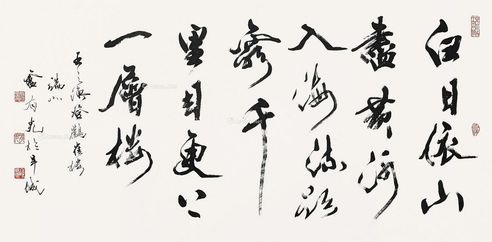 白日依山
盡黃河
入海流欲
窮千
里目更上
一層樓
王之渙登鸛雀樓
盧有光於羊城